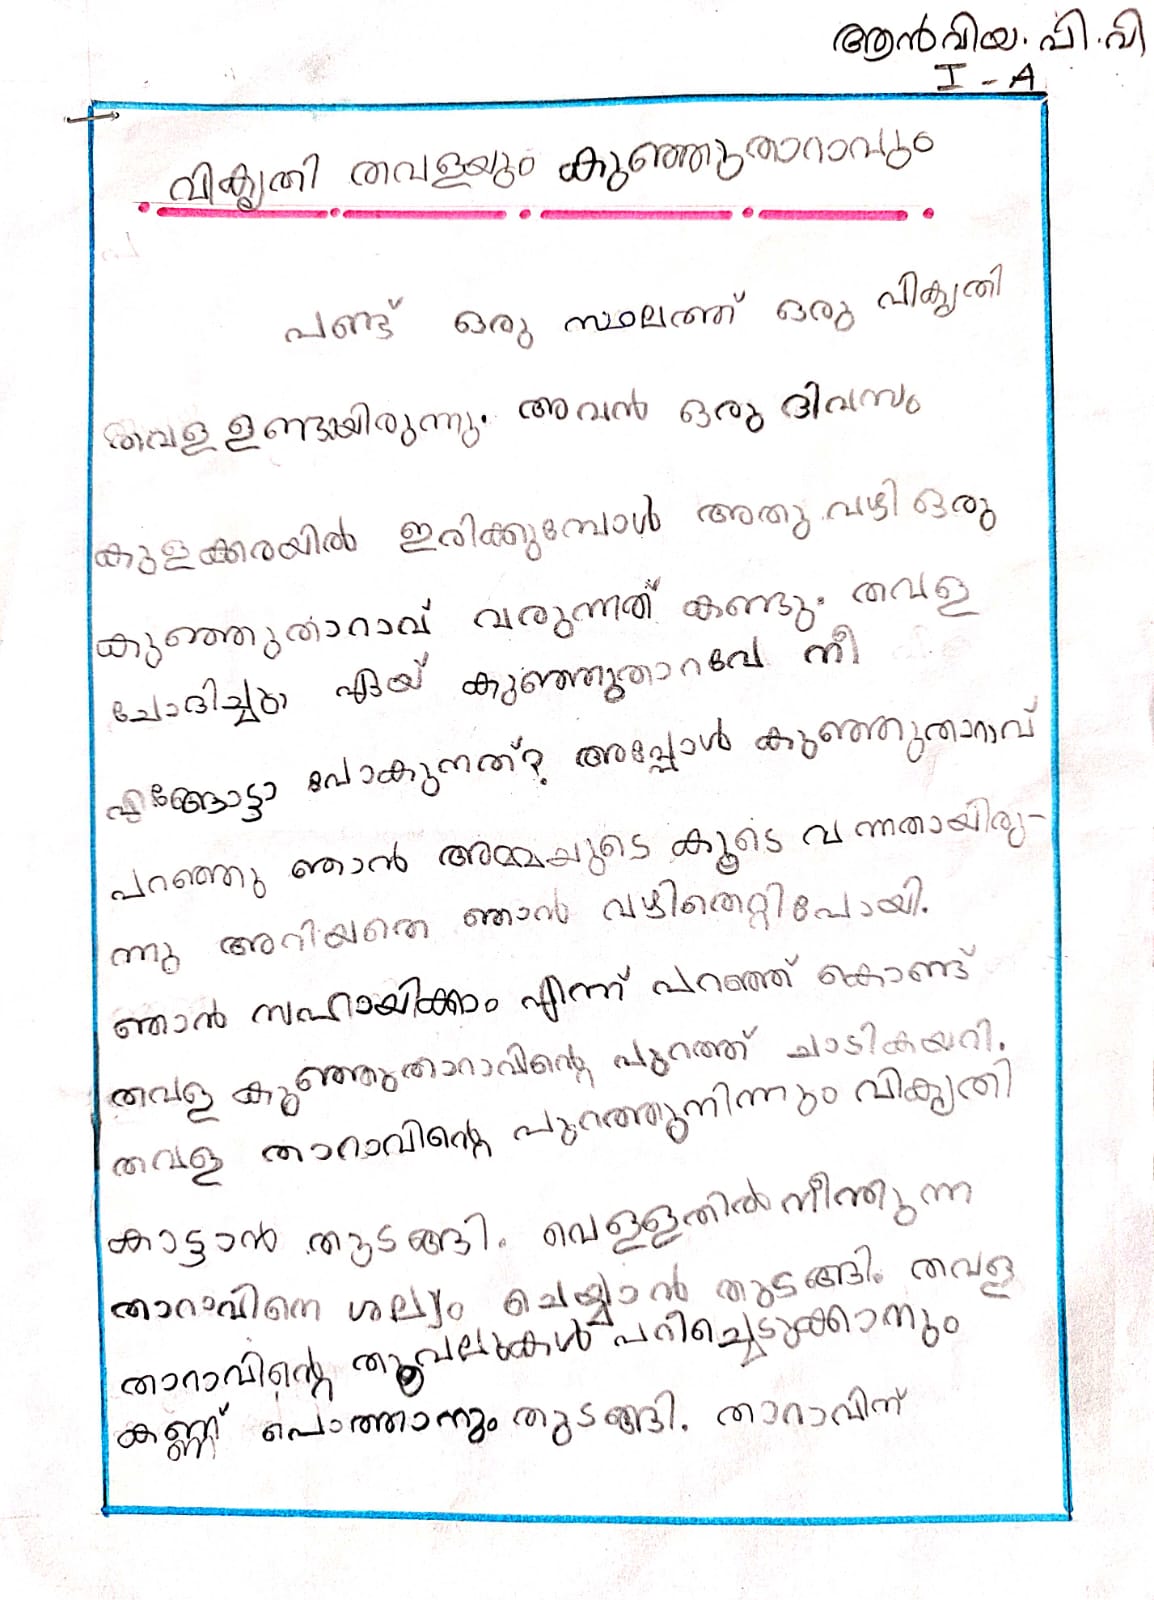 ആൻവിയ. പി. വി
I - A
വികൃതി തവളയും കുഞ്ഞുതാറാവും
പണ്ട് ഒരു സ്ഥലത്ത് ഒരു വികൃതി
തവള ഉണ്ടായിരുന്നു. അവൻ ഒരു ദിവസം
കുളക്കരയിൽ ഇരിക്കുമ്പോൾ അതു വഴി ഒരു
കുഞ്ഞുതാറാവ് വരുന്നത് കണ്ടു. തവള
ചോദിച്ചു ഏയ് കുഞ്ഞുതാറവേ നീ
എങ്ങോട്ടാ പോകുനത്? അപ്പോൾ കുഞ്ഞുതാറാവ്
പറഞ്ഞു ഞാൻ അമ്മയുടെ കൂടെ വന്നതായിരു-
ന്നു അറിയതെ ഞാൻ വഴിതെറ്റിപോയി.
ഞാൻ സഹായിക്കാം എന്ന് പറഞ്ഞ് കൊണ്ട്
തവള കുഞ്ഞുതാറാവിന്റെ പുറത്ത് ചാടികയറി.
തവള താറാവിന്റെ പുറത്തുനിന്നും വികൃതി
കാട്ടാൻ തുടങ്ങി. വെള്ളതിൽ നീന്തുന്ന
താറാവിനെ ശല്യം ചെയ്യാൻ തുടങ്ങി. തവള
താറാവിന്റെ തൂവലുകൾ പറിച്ചെടുക്കാനും
കണ്ണ് പൊത്താനും തുടങ്ങി. താറാവിന്